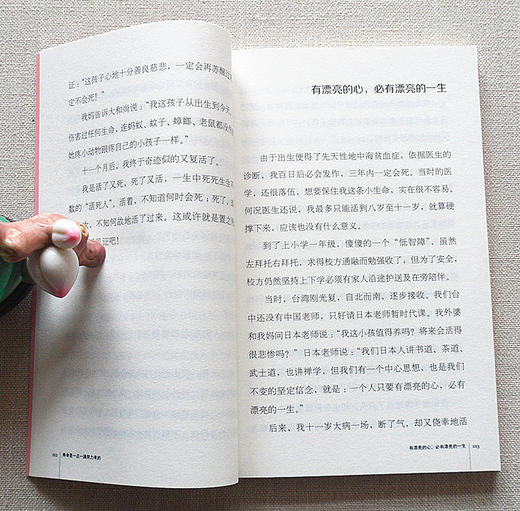 证：“这孩子心地十分善良慈悲，一定会再苏醒过
定不会死！”
我妈告诉大和尚说：“我这孩子从出生到今天，
伤害过任何生命，连蚂蚁、蚊子、蟑螂、老鼠都没
她疼小动物跟疼自己的小孩子一样。”
十一个月后，我终于奇迹似的又复活了。
我是活了又死，死了又活，一生中死死生生
数的“活死人”，活着，不知道何时会死；死了，
不知何故地活了过来。这或许就是置之
证吧！
012 寿命是一点一滴努力来的
有漂亮的心，必有漂亮的一生
由于出生便得了先天性地中海贫血症，依据医生的
诊断，我百日后必会发作，三年内一定会死。当时的医
学，还很落伍，想要保住我这条小生命，实在很不容易。
何况医生还说，我最多只能活到八岁至十一岁，就算硬
撑下来，应该也没有什么意义。
到了上小学一年级，傻傻的一个“低智障”，虽然
左拜托右拜托，求得校方通融而勉强收了，但为了安全，
校方仍然坚持上下学必须有家人沿途护送及在旁陪伴。
当时，台湾刚光复，自北而南，逐步接收。我们台
中还没有中国老师，只好请日本老师暂时代课。我外婆
和我妈问日本老师说：“我这小孩值得养吗？将来会活得
很悲惨吗？”日本老师说：“我们日本人讲书道、茶道、
武士道，也讲禅学，但我们有一个中心思想，也是我们
不变的坚定信念，就是：一个人只要有漂亮的心，必有
漂亮的一生。”
后来，我十一岁大病一场，断了气，却又侥幸地活
有漂亮的心，必有漂亮的一生 013